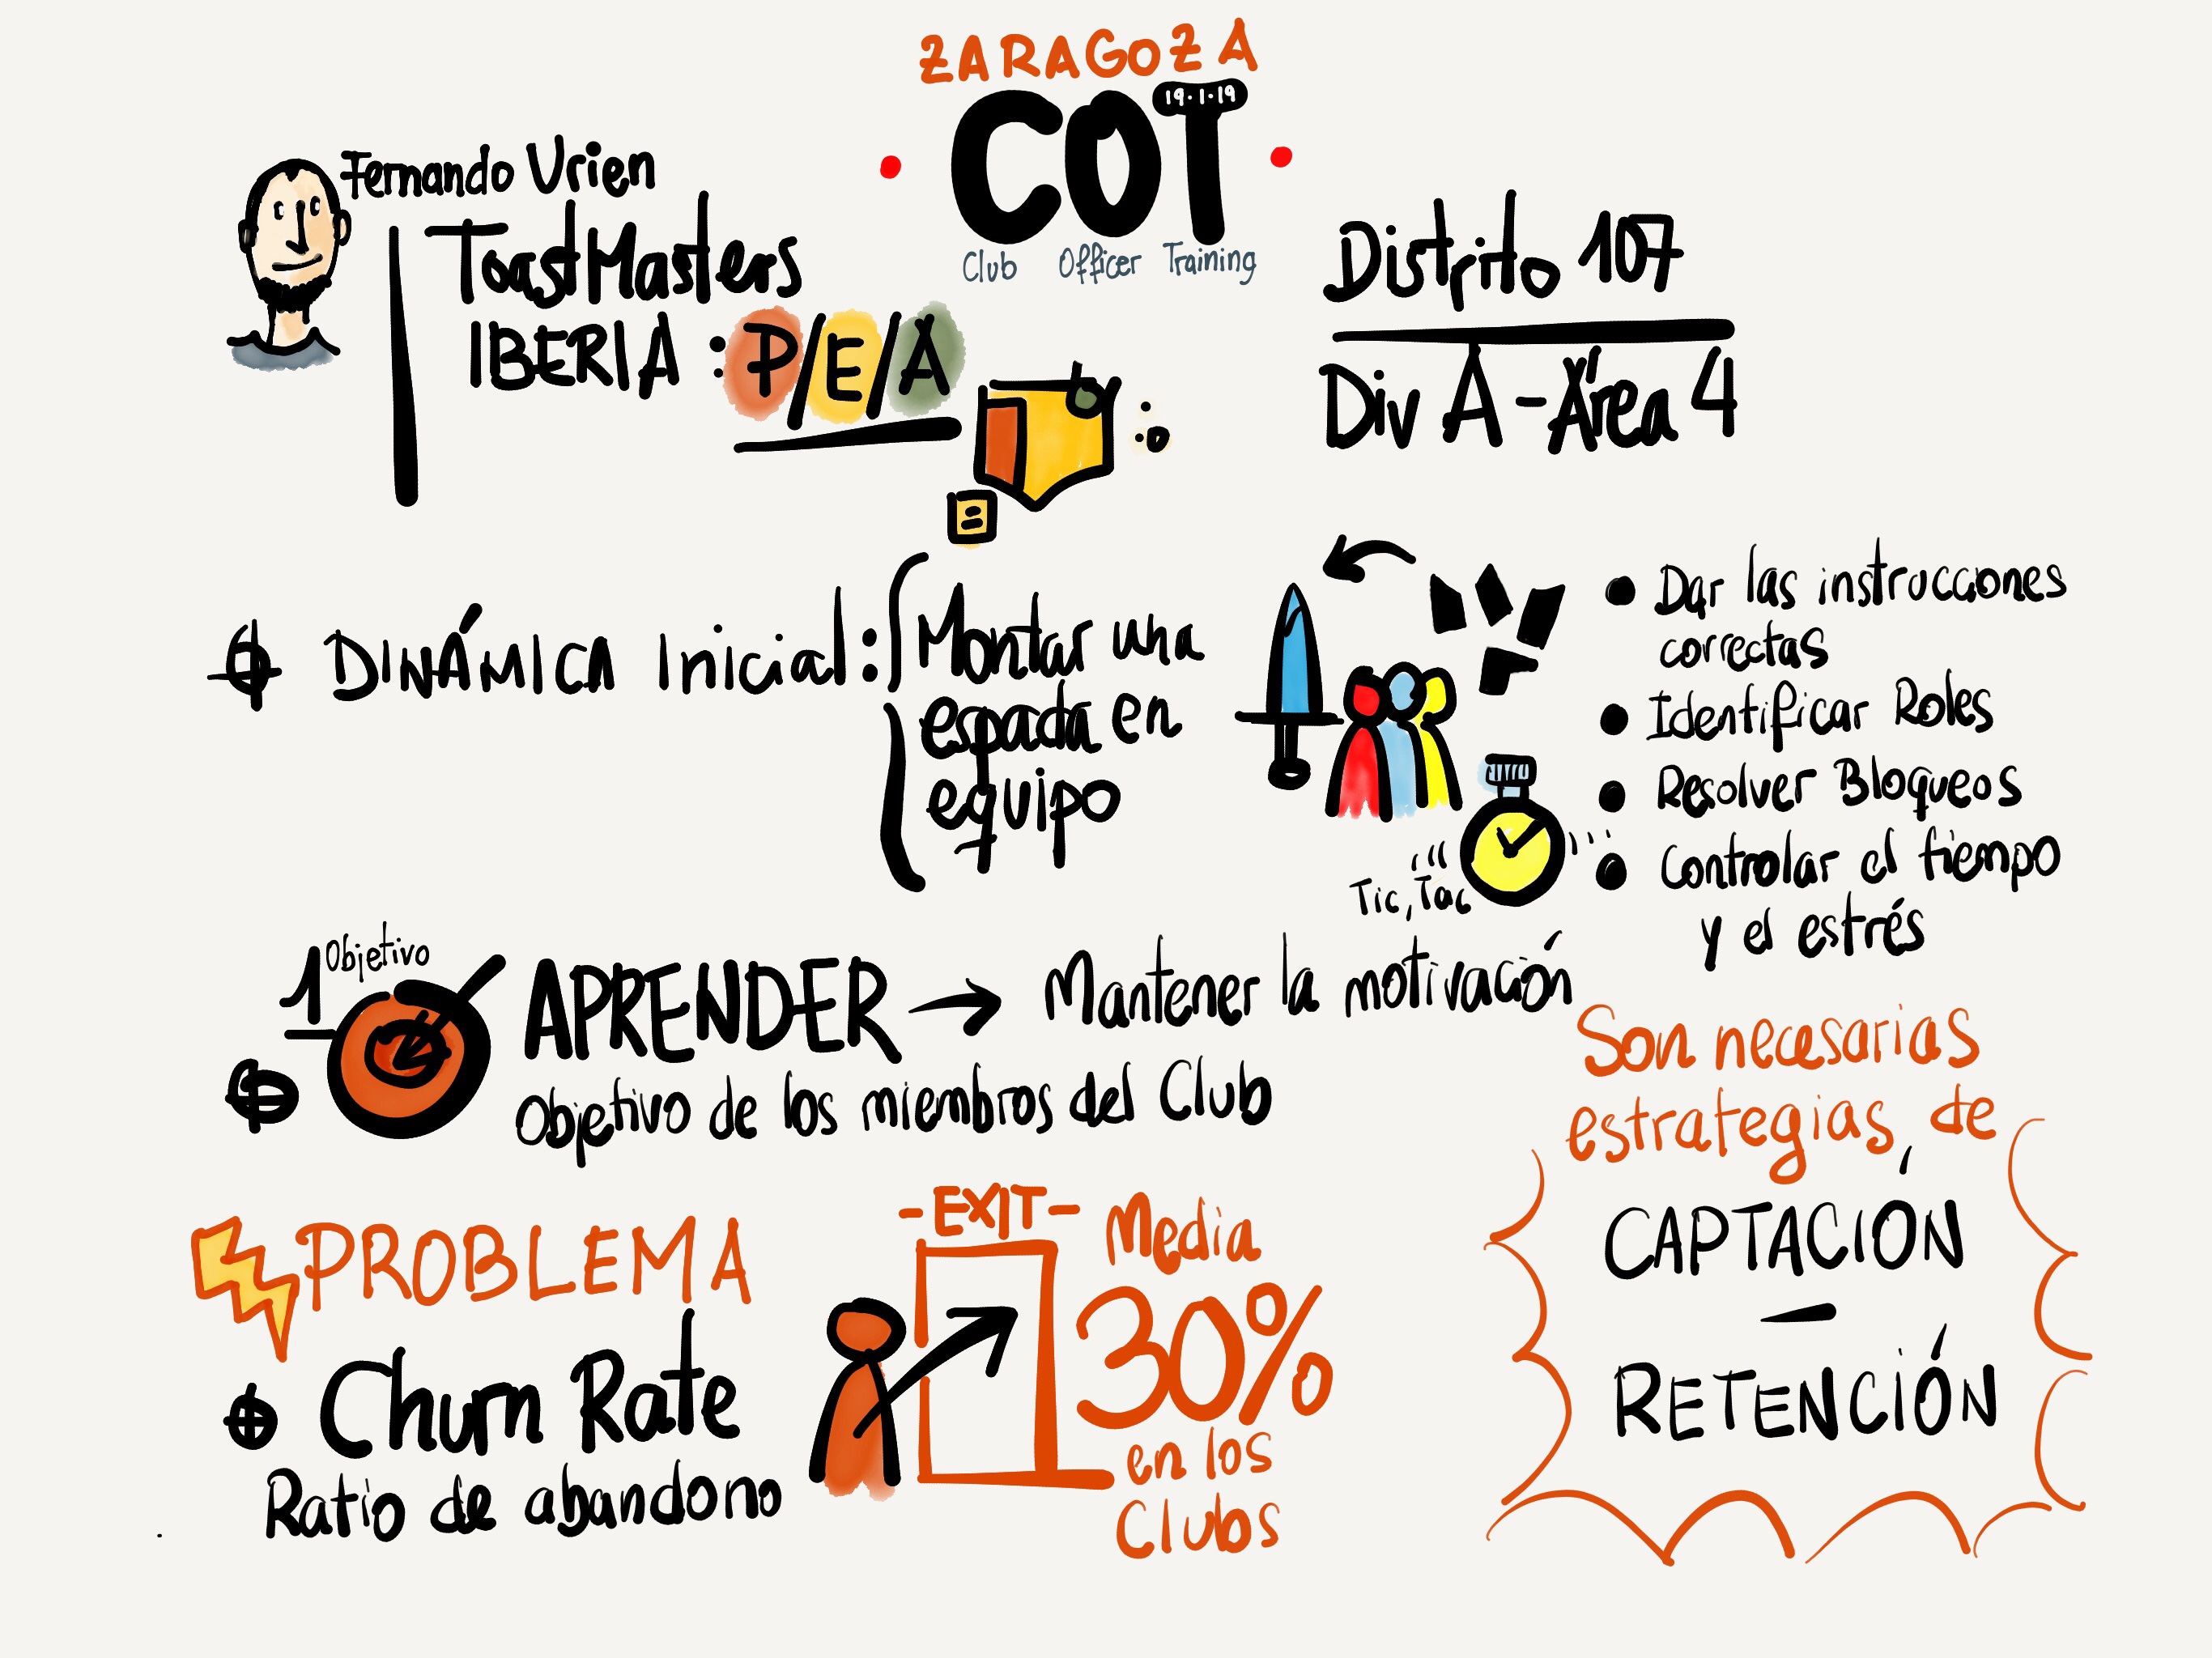 ZARAGOZA
COT
19·1·19
Club Officer Training
Fernando Urien
ToastMasters
IBERIA : P/E/A
Distrito 107
Div A - Área 4
DINÁMICA Inicial:
Montar una
espada en
equipo
Tic, Tac
• Dar las instrucciones
correctas
• Identificar Roles
• Resolver Bloqueos
• Controlar el tiempo
y el estrés
1 Objetivo
APRENDER → Mantener la motivación
Objetivo de los miembros del Club
PROBLEMA
Churn Rate
Ratio de abandono
-EXIT-
Media
30%
en los
Clubs
Son necesarias
estrategias de
CAPTACIÓN
—
RETENCIÓN